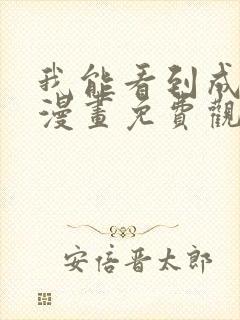 我能看到成
漫畫免費觀
安倍晋太郎